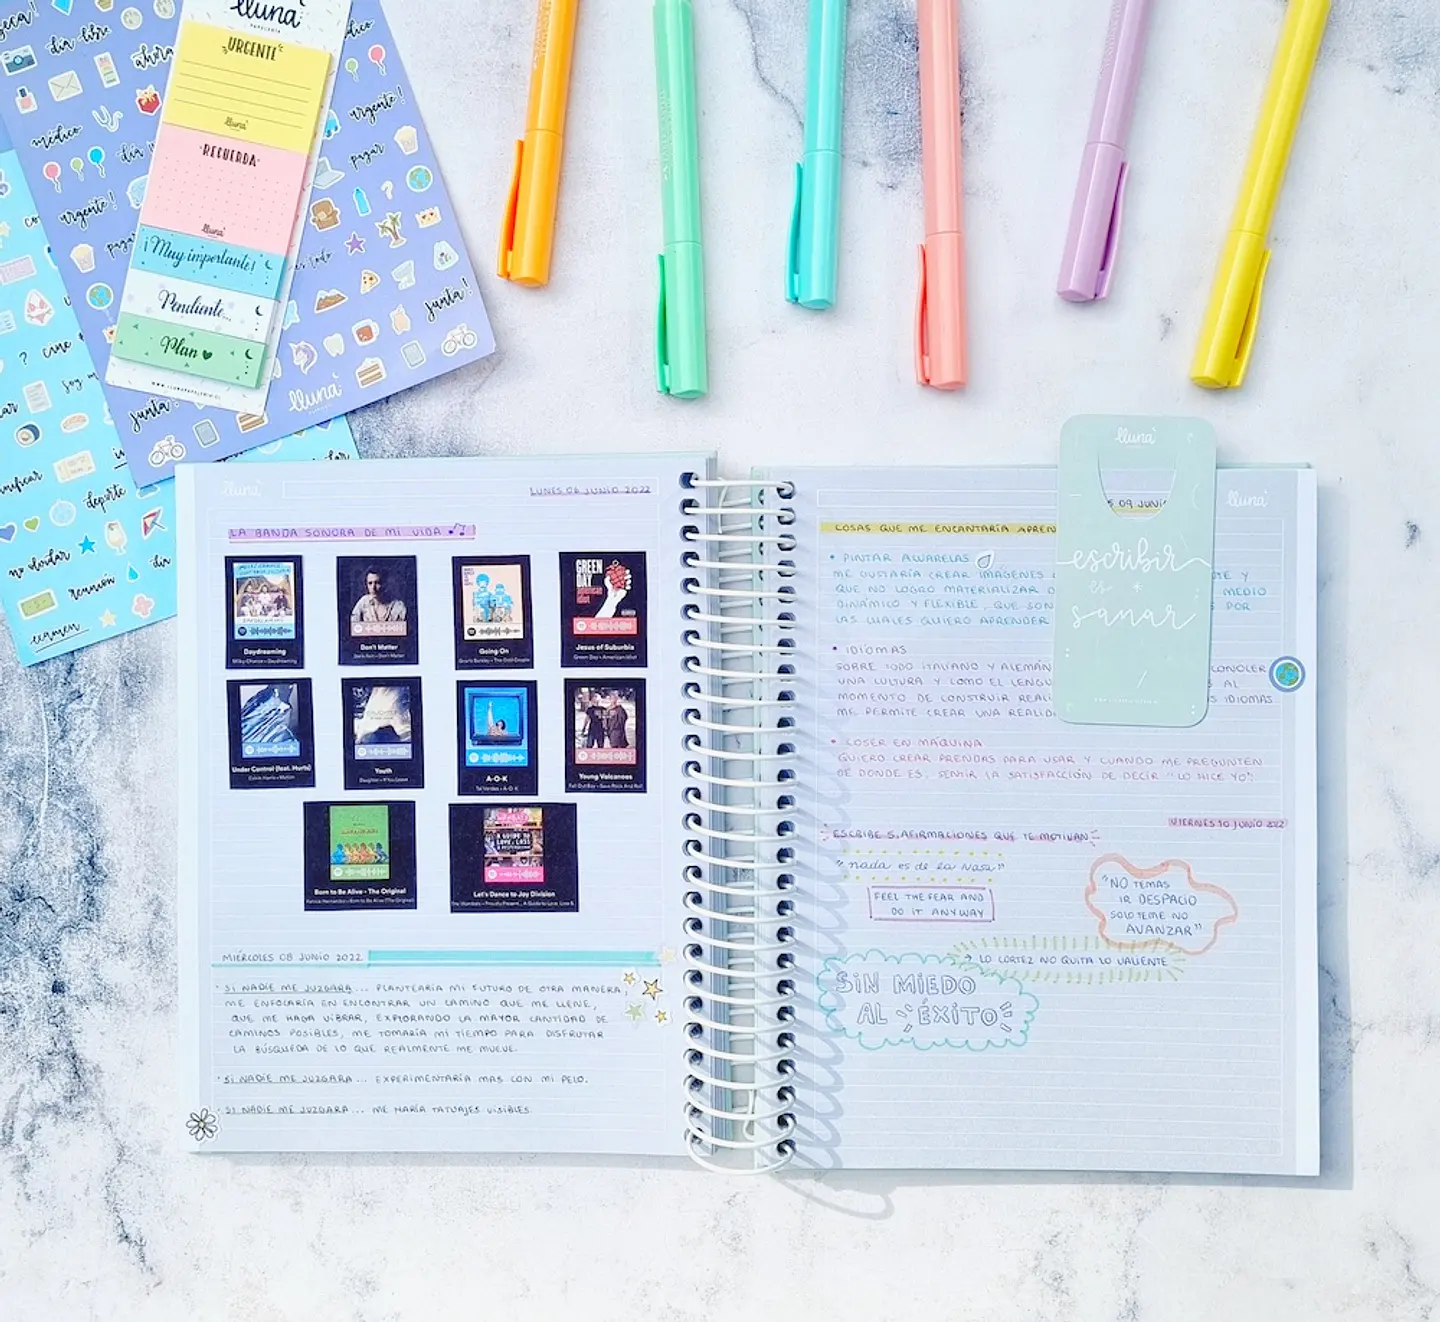 lluna
PAPELERÍA
URGENTE
lluna
RECUERDA
lluna
¡Muy importante!
Pendiente...
Plan
día libre
ahora
médico
médico
urgente!
día
pagar
urgente!
pagar
junta!
junta!
lluna
? cine
soy
deporte
no olvidar
reunión
día
examen
lluna
LUNES 06 JUNIO 2022
LA BANDA SONORA DE MI VIDA
Daydreaming
Milky Chance • Daydreaming
Don't Matter
Going On
GREEN DAY
american idiot
Jesus of Suburbia
Green Day • American Idiot
Under Control (feat. Hurts)
Calvin Harris • Motion
Youth
Daughter • If You Leave
A-O-K
Tai Verdes • A-O-K
Young Volcanoes
Fall Out Boy • Save Rock And Roll
Born to Be Alive - The Original
Patrick Hernandez • Born to Be Alive (The Original)
A GUIDE TO LOVE, LOSS
Let's Dance to Joy Division
The Wombats • Proudly Present... A Guide to Love, Loss &
MIÉRCOLES 08 JUNIO 2022
· SI NADIE ME JUZGARA... PLANTEARÍA MI FUTURO DE OTRA MANERA,
ME ENFOCARÍA EN ENCONTRAR UN CAMINO QUE ME LLENE,
QUE ME HAGA VIBRAR, EXPLORANDO LA MAYOR CANTIDAD DE
CAMINOS POSIBLES, ME TOMARÍA MI TIEMPO PARA DISFRUTAR
LA BÚSQUEDA DE LO QUE REALMENTE ME MUEVE.
· SI NADIE ME JUZGARA... EXPERIMENTARÍA MAS CON MI PELO.
· SI NADIE ME JUZGARA... ME HARÍA TATUAJES VISIBLES
09 JUNIO
lluna
COSAS QUE ME ENCANTARÍA APREN
• PINTAR ACUARELAS
ME GUSTARÍA CREAR IMÁGENES
QUE NO LOGRO MATERIALIZAR MEDIO
DINÁMICO Y FLEXIBLE, QUE SON POR
LAS CUALES QUIERO APRENDER
• IDIOMAS
SOBRE TODO ITALIANO Y ALEMÁN CONOCER
UNA CULTURA Y COMO EL LENGU AL
MOMENTO DE CONSTRUIR REALI IDIOMAS
ME PERMITE CREAR UNA REALID
• COSER EN MÁQUINA
QUIERO CREAR PRENDAS PARA USAR Y CUANDO ME PREGUNTEN
DE DONDE ES, SENTIR LA SATISFACCIÓN DE DECIR "LO HICE YO".
lluna
escribir
es
sanar
VIERNES 10 JUNIO 2022
ESCRIBE 5 AFIRMACIONES QUE TE MOTIVAN
"nada es de la Nasa"
FEEL THE FEAR AND
DO IT ANYWAY
"NO TEMAS
IR DESPACIO
SOLO TEME NO
AVANZAR"
LO CORTEZ NO QUITA LO VALIENTE
SIN MIEDO
AL ÉXITO